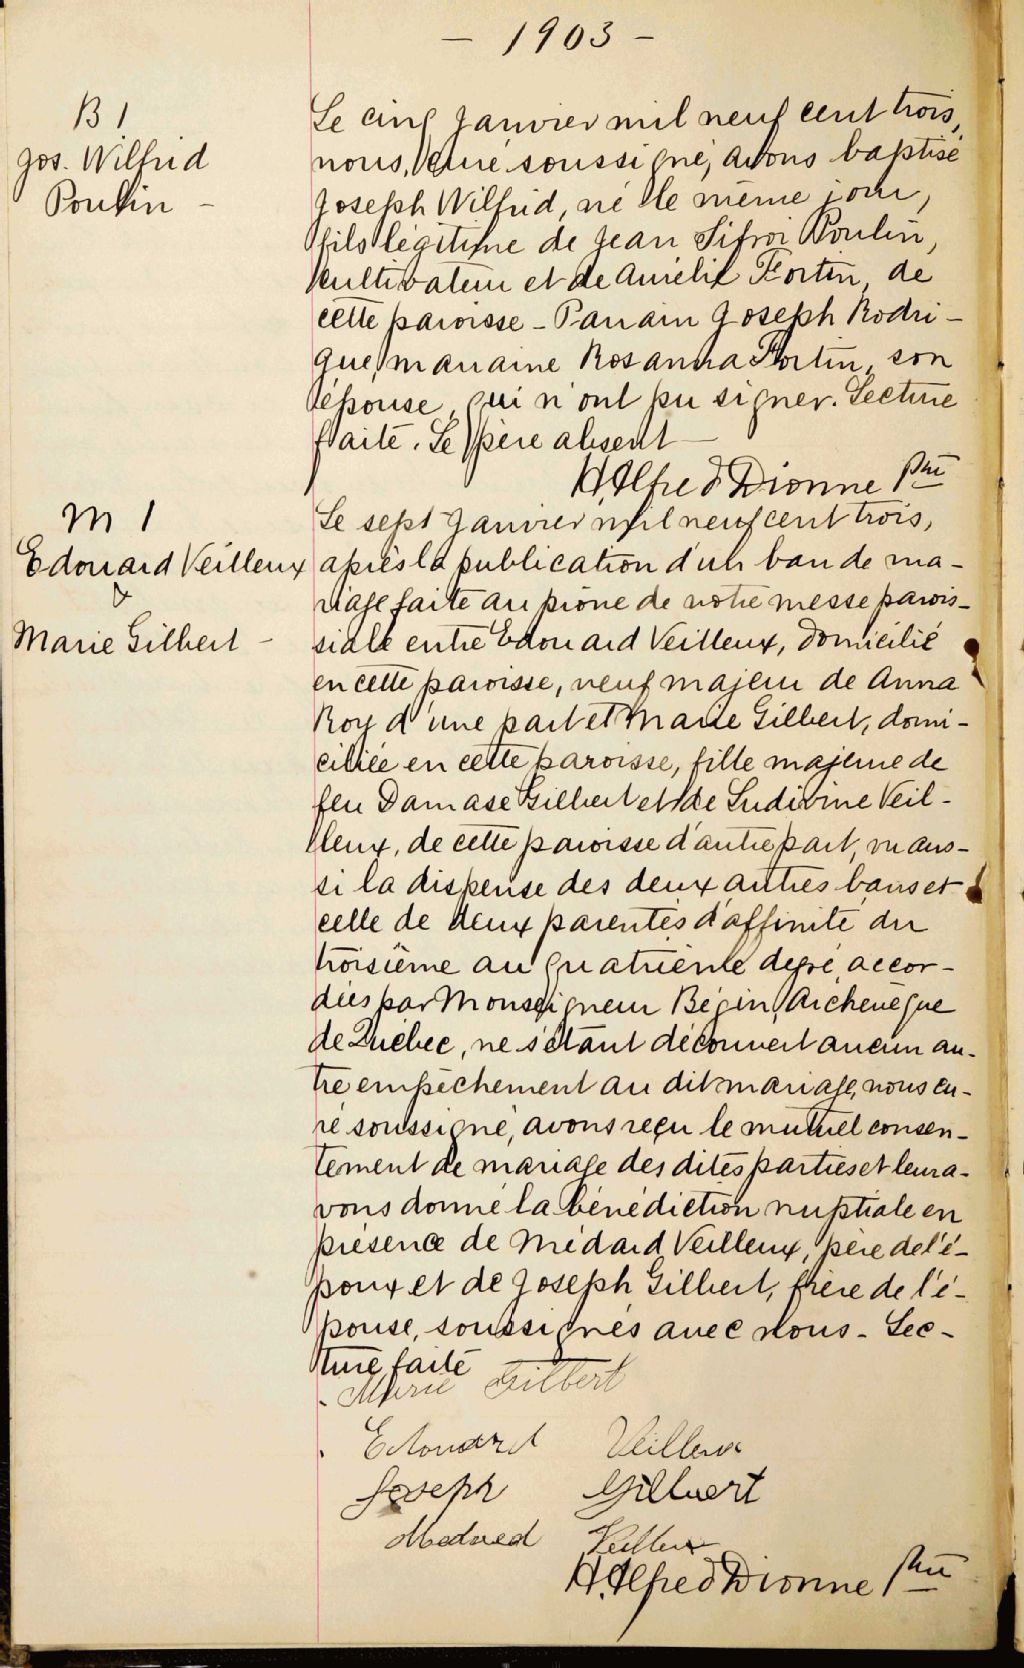 — 1903 —
B 1
Jos. Wilfrid
Poulin —
Le cinq janvier mil neuf cent trois,
nous, curé soussigné, avons baptisé
Joseph Wilfrid, né le même jour,
fils légitime de Jean Sifroi Poulin,
cultivateur et de Aurélie Fortin, de
cette paroisse - Parrain Joseph Rodri-
gue, marraine Rosanna Fortin, son
épouse, qui n'ont pu signer. Lecture
faite. Le père absent —
H. Alfred Dionne Ptre
M 1
Edouard Veilleux
&
Marie Gilbert —
Le sept janvier mil neuf cent trois,
après la publication d'un ban de ma-
riage faite au prône de notre messe parois-
siale entre Edouard Veilleux, domicilié
en cette paroisse, veuf majeur de Anna
Roy d'une part et Marie Gilbert, domi-
ciliée en cette paroisse, fille majeure de
feu Damase Gilbert et de Ludivine Veil-
leux, de cette paroisse d'autre part, vu aus-
si la dispense des deux autres bans et
celle de deux parentés d'affinité du
troisième au quatrième degré accor-
dées par Monseigneur Bégin, Archevêque
de Québec, ne s'étant découvert aucun au-
tre empêchement au dit mariage, nous cu-
ré soussigné, avons reçu le mutuel consen-
tement de mariage des dites parties et leur a-
vons donné la bénédiction nuptiale en
présence de Médard Veilleux, père de l'é-
poux et de Joseph Gilbert, frère de l'é-
pouse, soussignés avec nous - Lec-
ture faite
Marie Gilbert
Edouard Veilleux
Joseph Gilbert
Medard Veilleux
H. Alfred Dionne Ptre